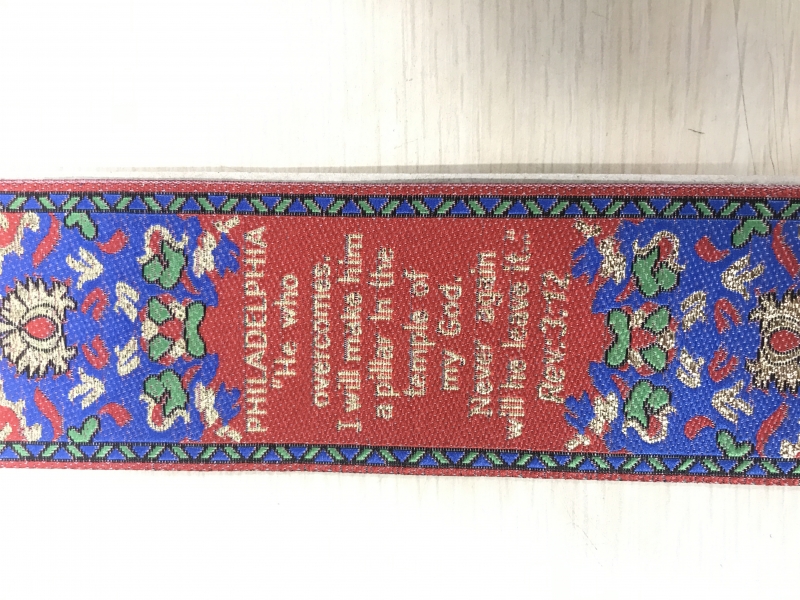 PHILADELPHIA
"He who
overcomes.
I will make him
a pillar in the
temple of
my God.
Never again
will he leave it..."
Rev:3:12